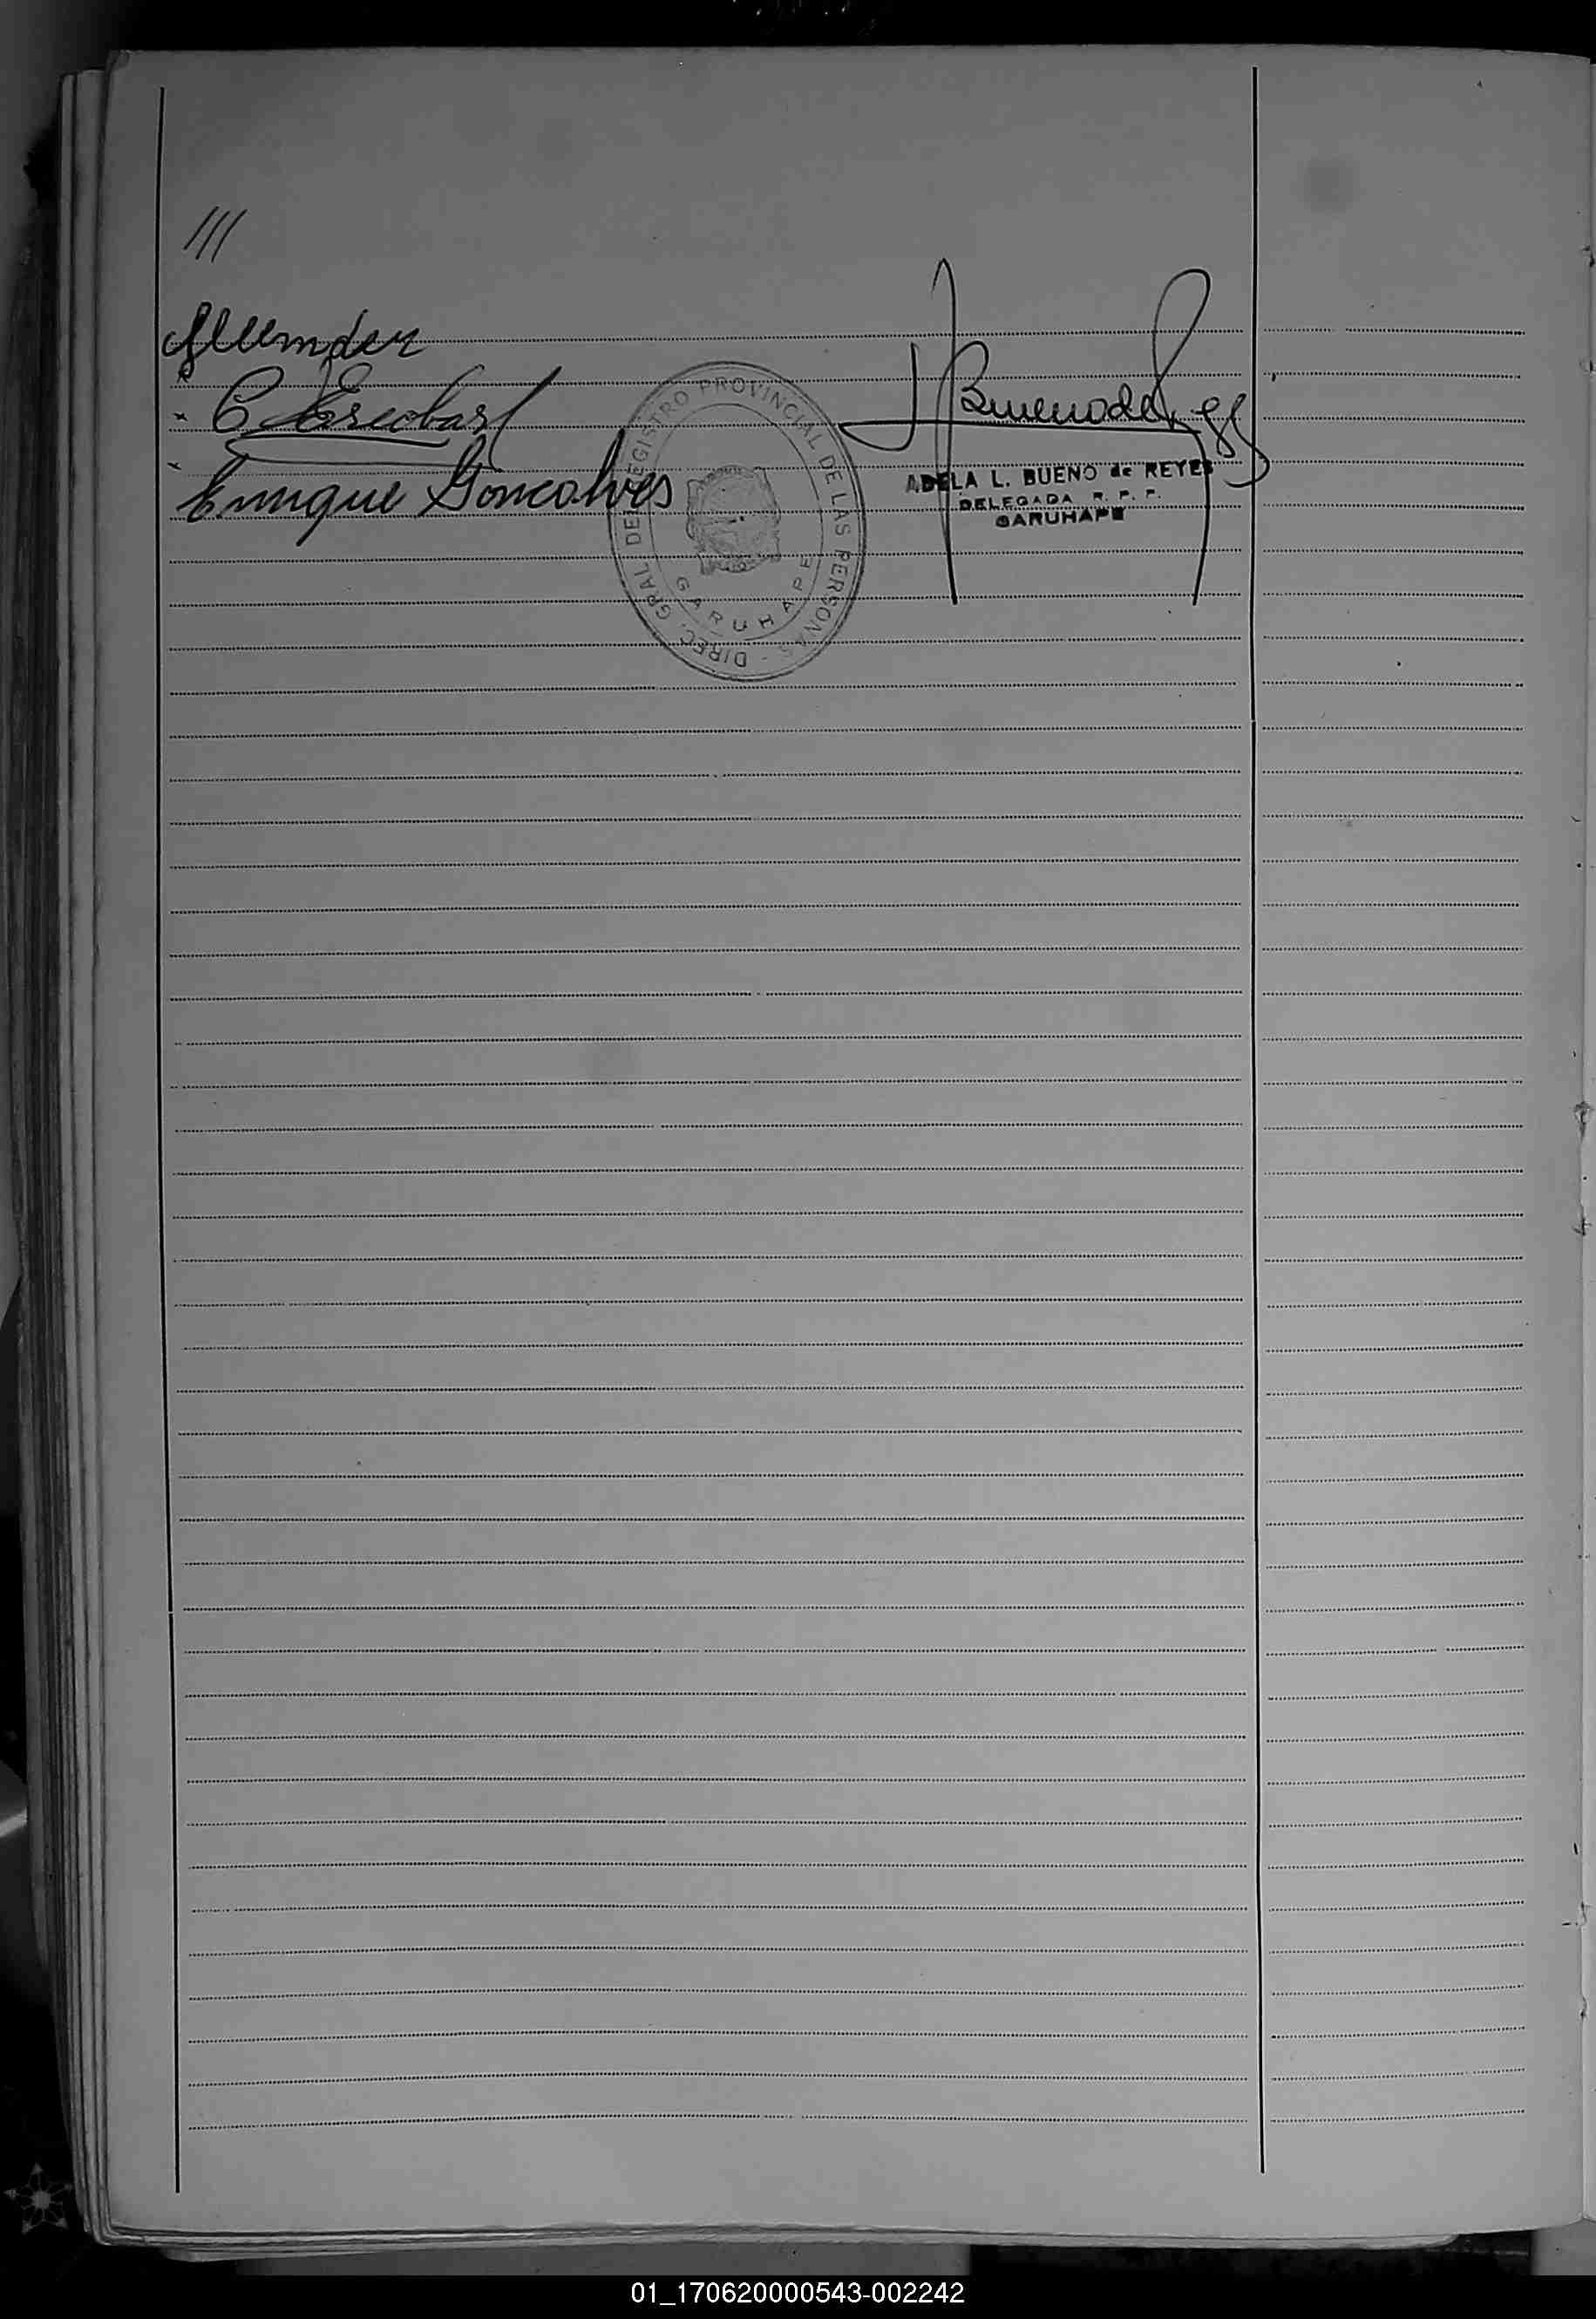 ///
C. Escobar
Enrique Goncalves
DIREC. GRAL DEL REGISTRO PROVINCIAL DE LAS PERSONAS -
GARUHAPE
Bueno de Reyes
ADELA L. BUENO de REYES
DELEGADA R. P. P.
GARUHAPE
01_170620000543-002242